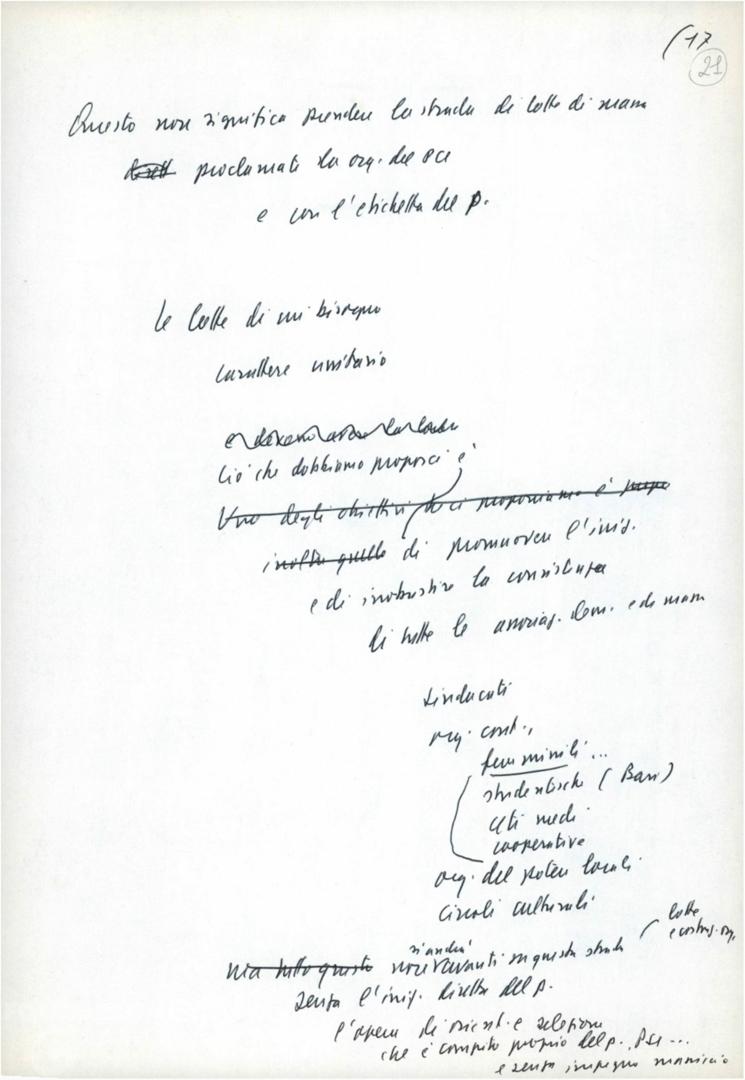 (17
21
Questo non significa prendere la strada di lotte di massa
proclamate da org. del PCI
e con l'etichetta del p.
Le lotte di cui bisogno
carattere unitario
Ciò che dobbiamo proporci è
Uno degli obiettivi che ci proponiamo è
inoltre quello di promuovere l'iniz.
e di irrobustire la consistenza
di tutte le associaz. dem. e di massa
sindacati
org. cont.,
femminili...
studentische (Bari)
ceti medi
cooperative
org. del potere locale
circoli culturali
lotte
e costruz. org.
si andrà
ma tutto questo non avanti in questa strada
senza l'iniz. diretta del p.
l'opera di orient. e selezione
che è compito proprio del p. PCI...
e senza impegno massiccio